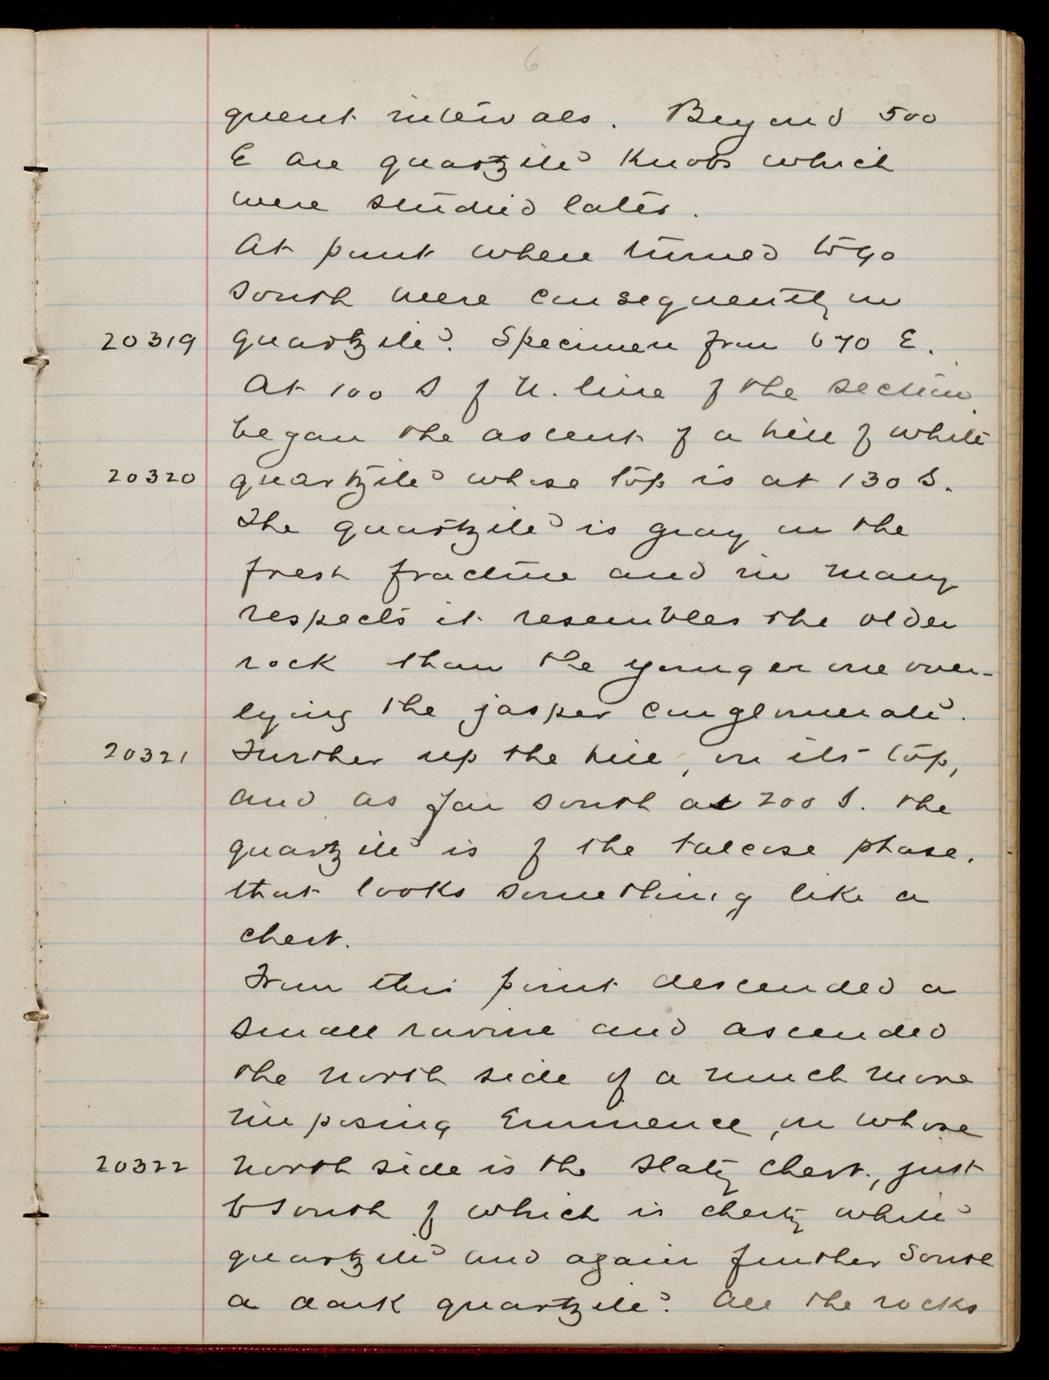 6
quent intervals. Beyond 500
E are quartzite knobs which
were studied later.
At point where turned to go
south were consequently on
20319 quartzite. Specimen from 670 E.
At 100 S of N. line of the section
began the ascent of a hill of white
20320 quartzite whose top is at 130 S.
The quartzite is gray on the
fresh fracture and in many
respects it resembles the older
rock than the younger one over-
lying the jasper conglomerate.
20321 Further up the hill, on its top,
and as far south as 200 S. the
quartzite is of the talcose phase.
that looks something like a
chert.
From this point descended a
small ravine and ascended
the north side of a much more
imposing Eminence, on whose
20322 north side is the slaty chert, just
to South of which is cherty white
quartzite and again further South
a dark quartzite. All the rocks